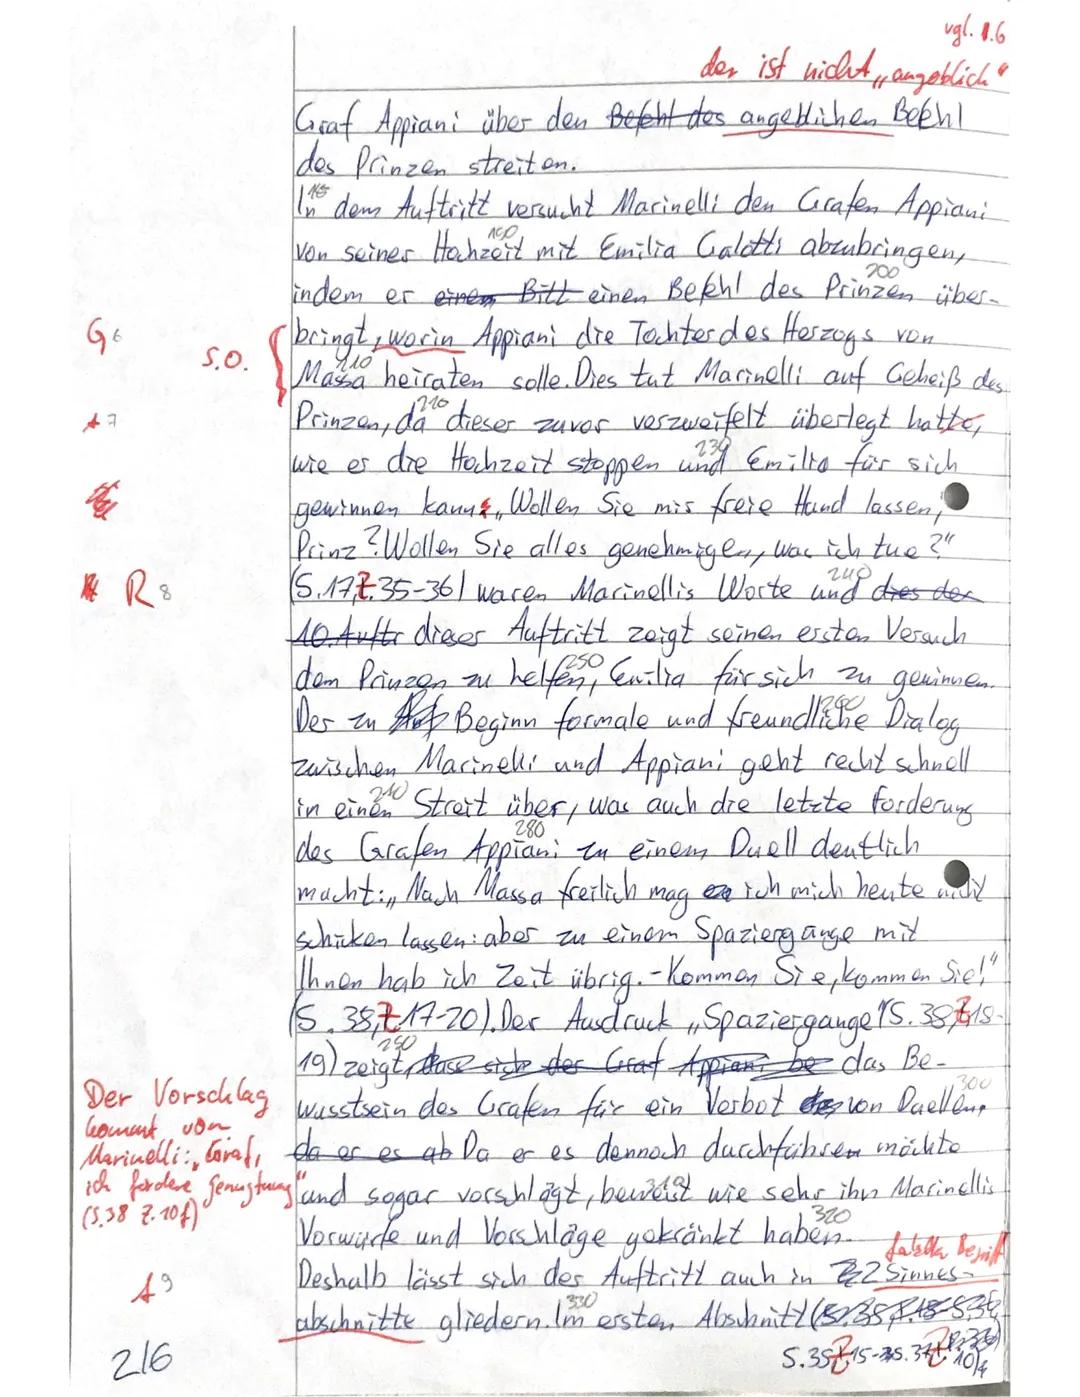 vgl. 1.6
der ist nicht „angeblich"
Graf Appiani über den Befehl des angeblichen Befehl
des Prinzen streiten.
In dem Auftritt versucht Marinelli den Grafen Appiani
190
von seiner Hochzeit mit Emilia Galotti abzubringen,
200
indem er einen Bitt einen Befehl des Prinzen über-
G 6
S.O.
bringt, worin Appiani die Tochter des Herzogs von
210
Massa heiraten solle. Dies tut Marinelli auf Geheiß des
A 7
210
Prinzen, da dieser zuvor verzweifelt überlegt hatte,
230
wie er die Hochzeit stoppen und Emilia für sich
gewinnen kann: „Wollen Sie mir freie Hand lassen,
Prinz? Wollen Sie alles genehmigen, was ich tue?"
R 8
240
(S.17, Z.35-36) waren Marinellis Worte und dies der
10. Auftr dieser Auftritt zeigt seinen ersten Versuch
250
dem Prinzen zu helfen, Emilia für sich zu gewinnen.
260
Der zu Beginn formale und freundliche Dialog
zwischen Marinelli und Appiani geht recht schnell
in einen Streit über, was auch die letzte Forderung
280
des Grafen Appiani zu einem Duell deutlich
macht: „Nach Massa freilich mag ich mich heute nicht
schicken lassen: aber zu einem Spaziergange mit
Ihnen hab ich Zeit übrig. - Kommen Sie, kommen Sie!"
(S. 38, Z 17-20). Der Ausdruck „Spaziergange" (S. 38, Z 18-
290
19) zeigt, dass sich der Graf Appiani be das Be-
300
wusstsein des Grafen für ein Verbot des von Duellen,
da er es ab Da er es dennoch durchführen möchte
310
und sogar vorschlägt, beweist wie sehr ihn Marinellis
320
Vorwürfe und Vorschläge gekränkt haben.
Der Vorschlag
kommt von
Marinelli: „Graf,
ich fordere Genugtuung"
(S.38 Z.10f)
falscher Begriff
Deshalb lässt sich der Auftritt auch in 2 Sinnes-
A 9
330
abschnitte gliedern. Im ersten Abschnitt (
2/6